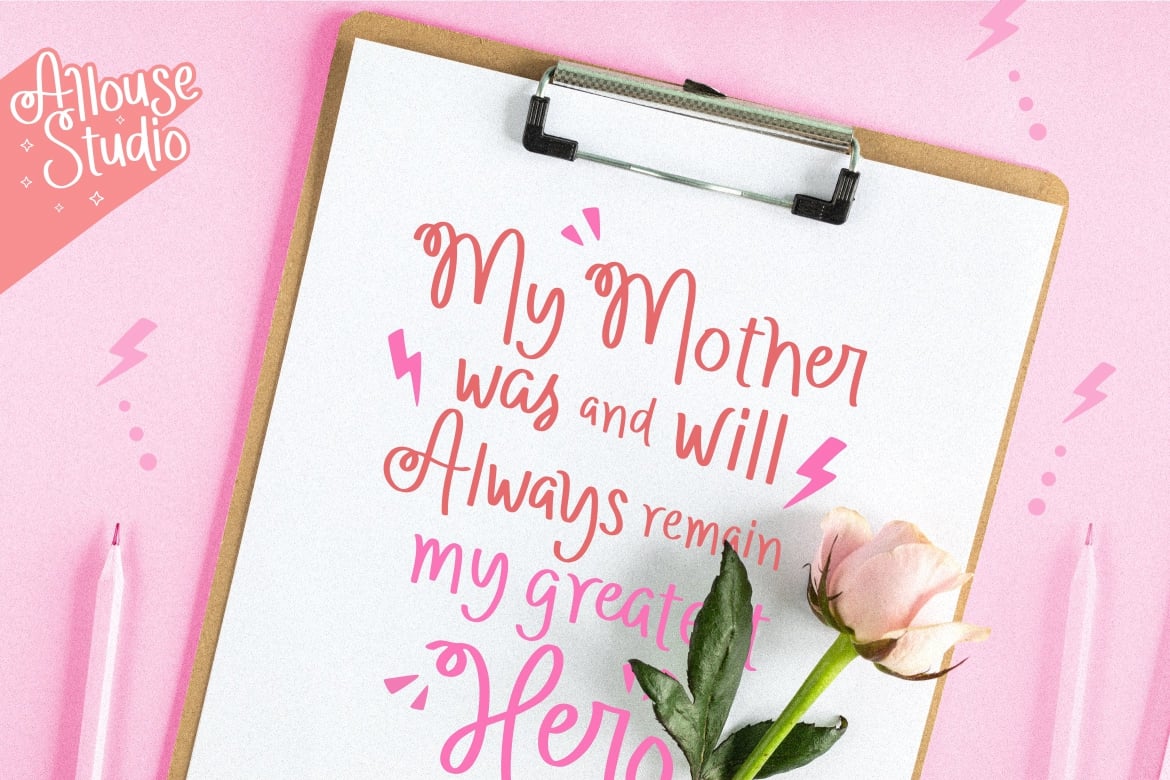 Allouse
Studio
My Mother
was and will
Always remain
my greatest
Hero